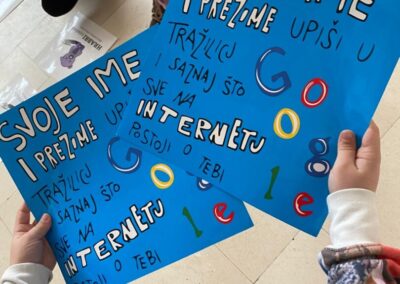 SVOJE IME
I PREZIME UPIŠI U
TRAŽILICU
I SAZNAJ ŠTO
SVE NA
INTERNETU
POSTOJI O TEBI
Google
SVOJE IME
I PREZIME UPI
TRAŽILICU
I SAZNAJ ŠTO
SVE NA
INTERNETU
POSTOJI O TEBI
Go le